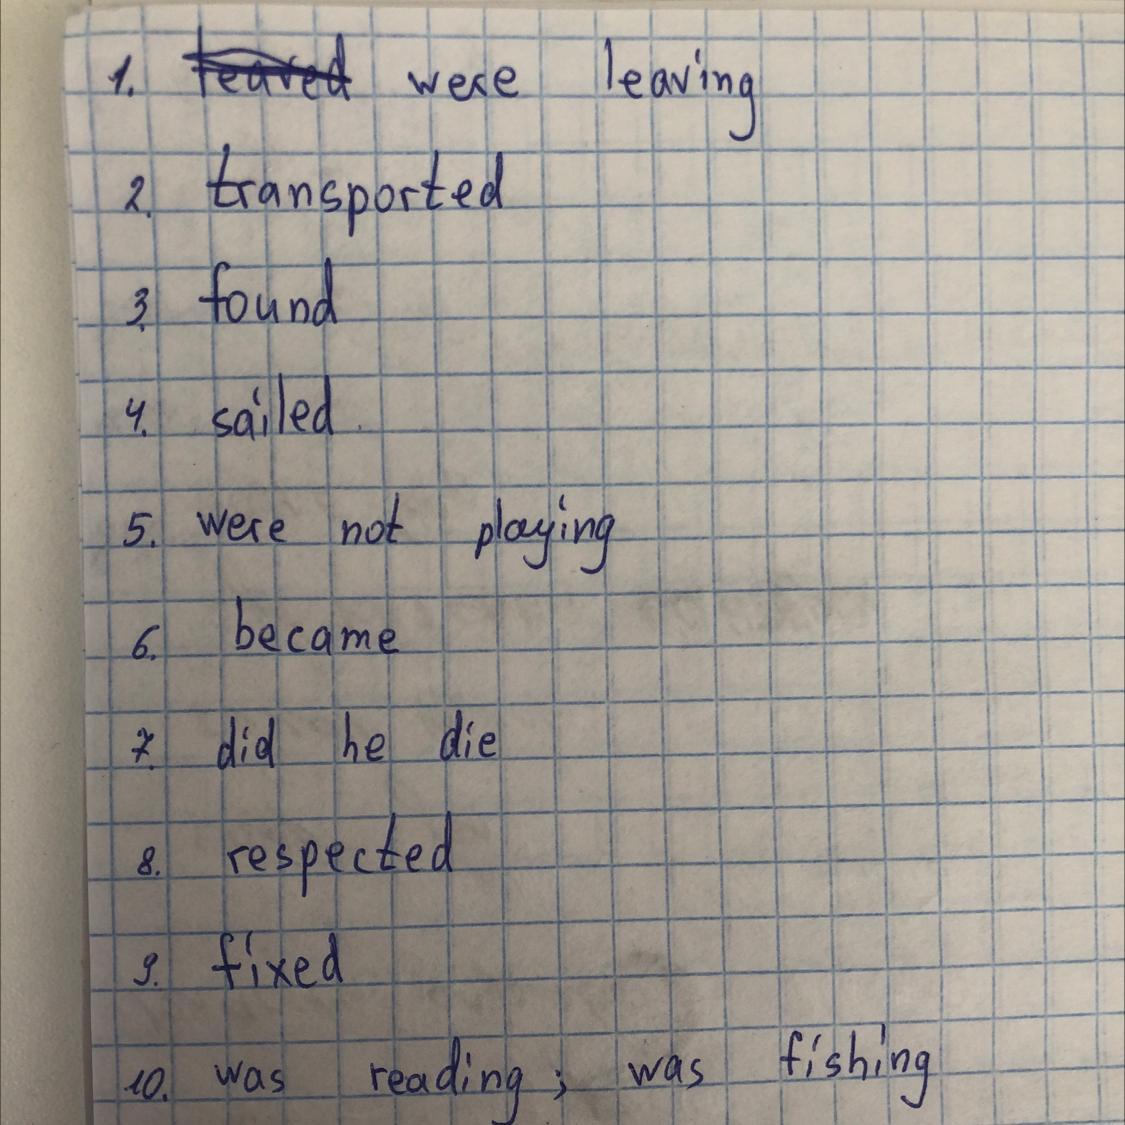 1. leaved were leaving
2. transported
3. found
4. sailed
5. were not playing
6. became
7. did he die
8. respected
9. fixed
10. was reading; was fishing